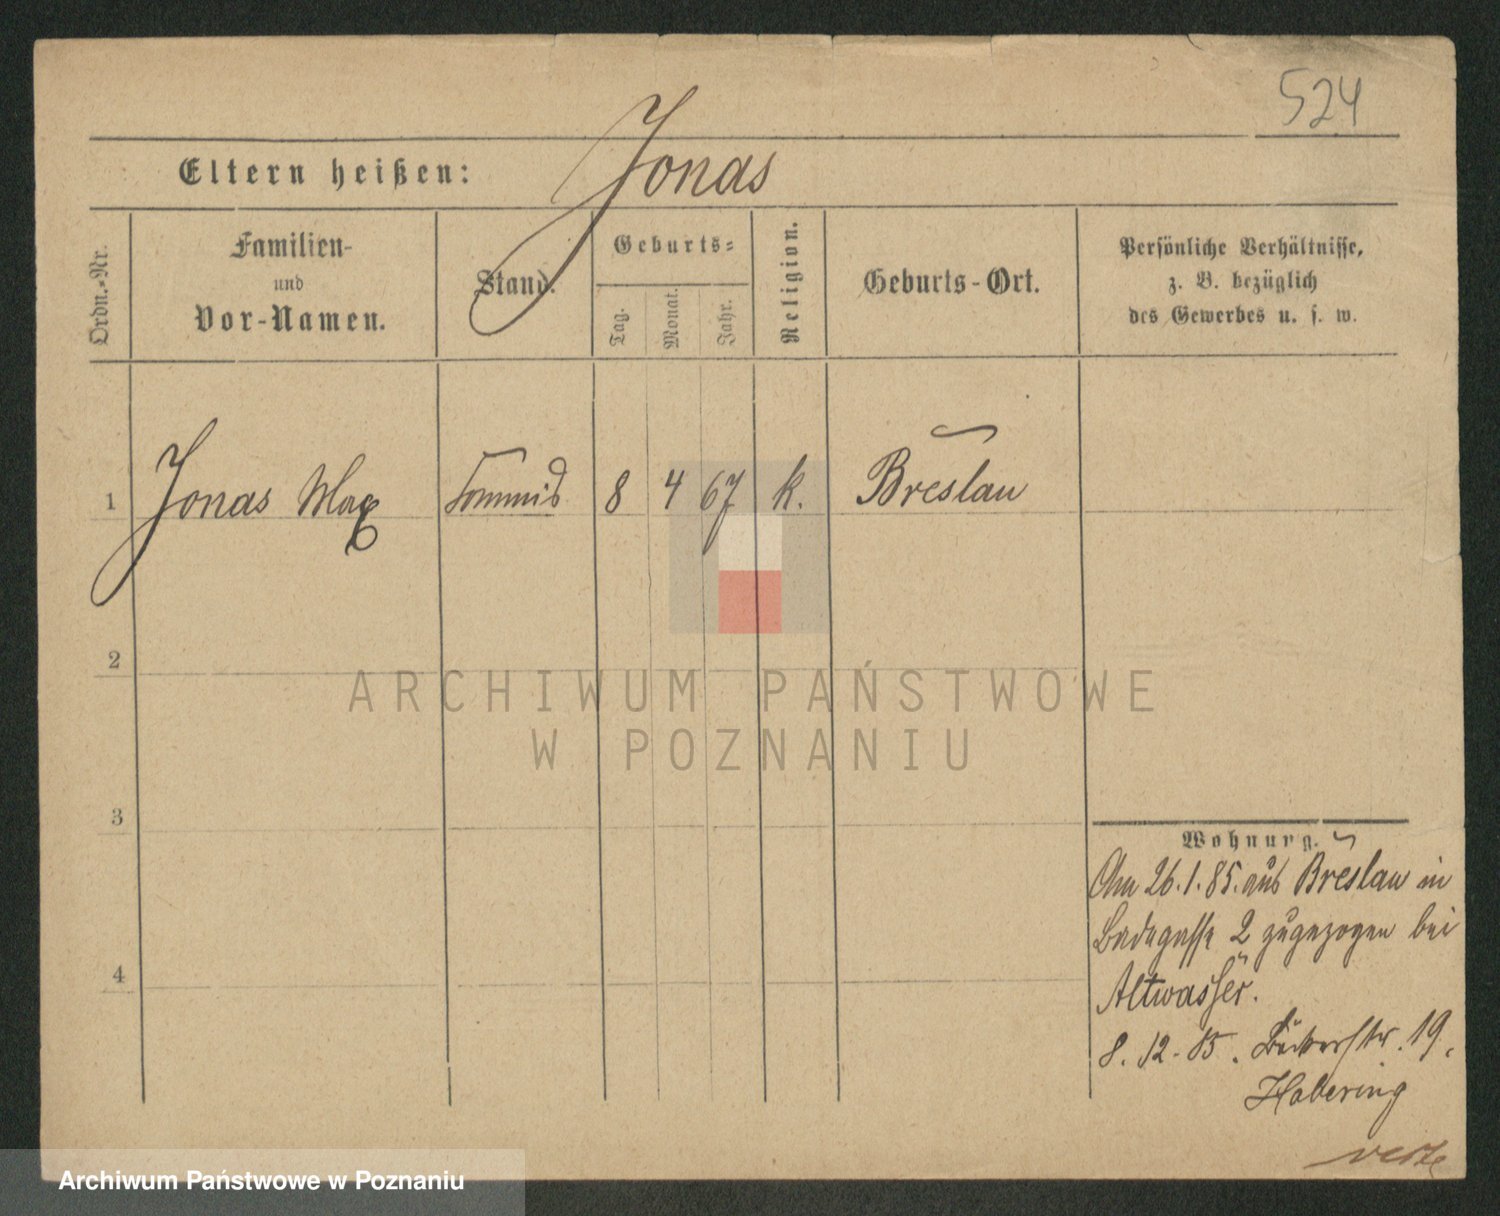 524
Eltern heißen: Jonas
Ordn.-Nr.
Familien-
und
Vor-Namen.
Stand.
Geburts-
Tag.
Monat.
Jahr.
Religion.
Geburts-Ort.
Persönliche Verhältnisse,
z. B. bezüglich
des Gewerbes u. s. w.
1 Jonas Max Commis 8 4 67 k. Breslau
2
3
4
Wohnung.
Am 26.1.85. aus Breslau in
Badegasse 2 zugezogen bei
Altwasser.
8. 12. 85. Bäckerstr. 19.
Habering
verte
ARCHIWUM PAŃSTWOWE
W POZNANIU
Archiwum Państwowe w Poznaniu